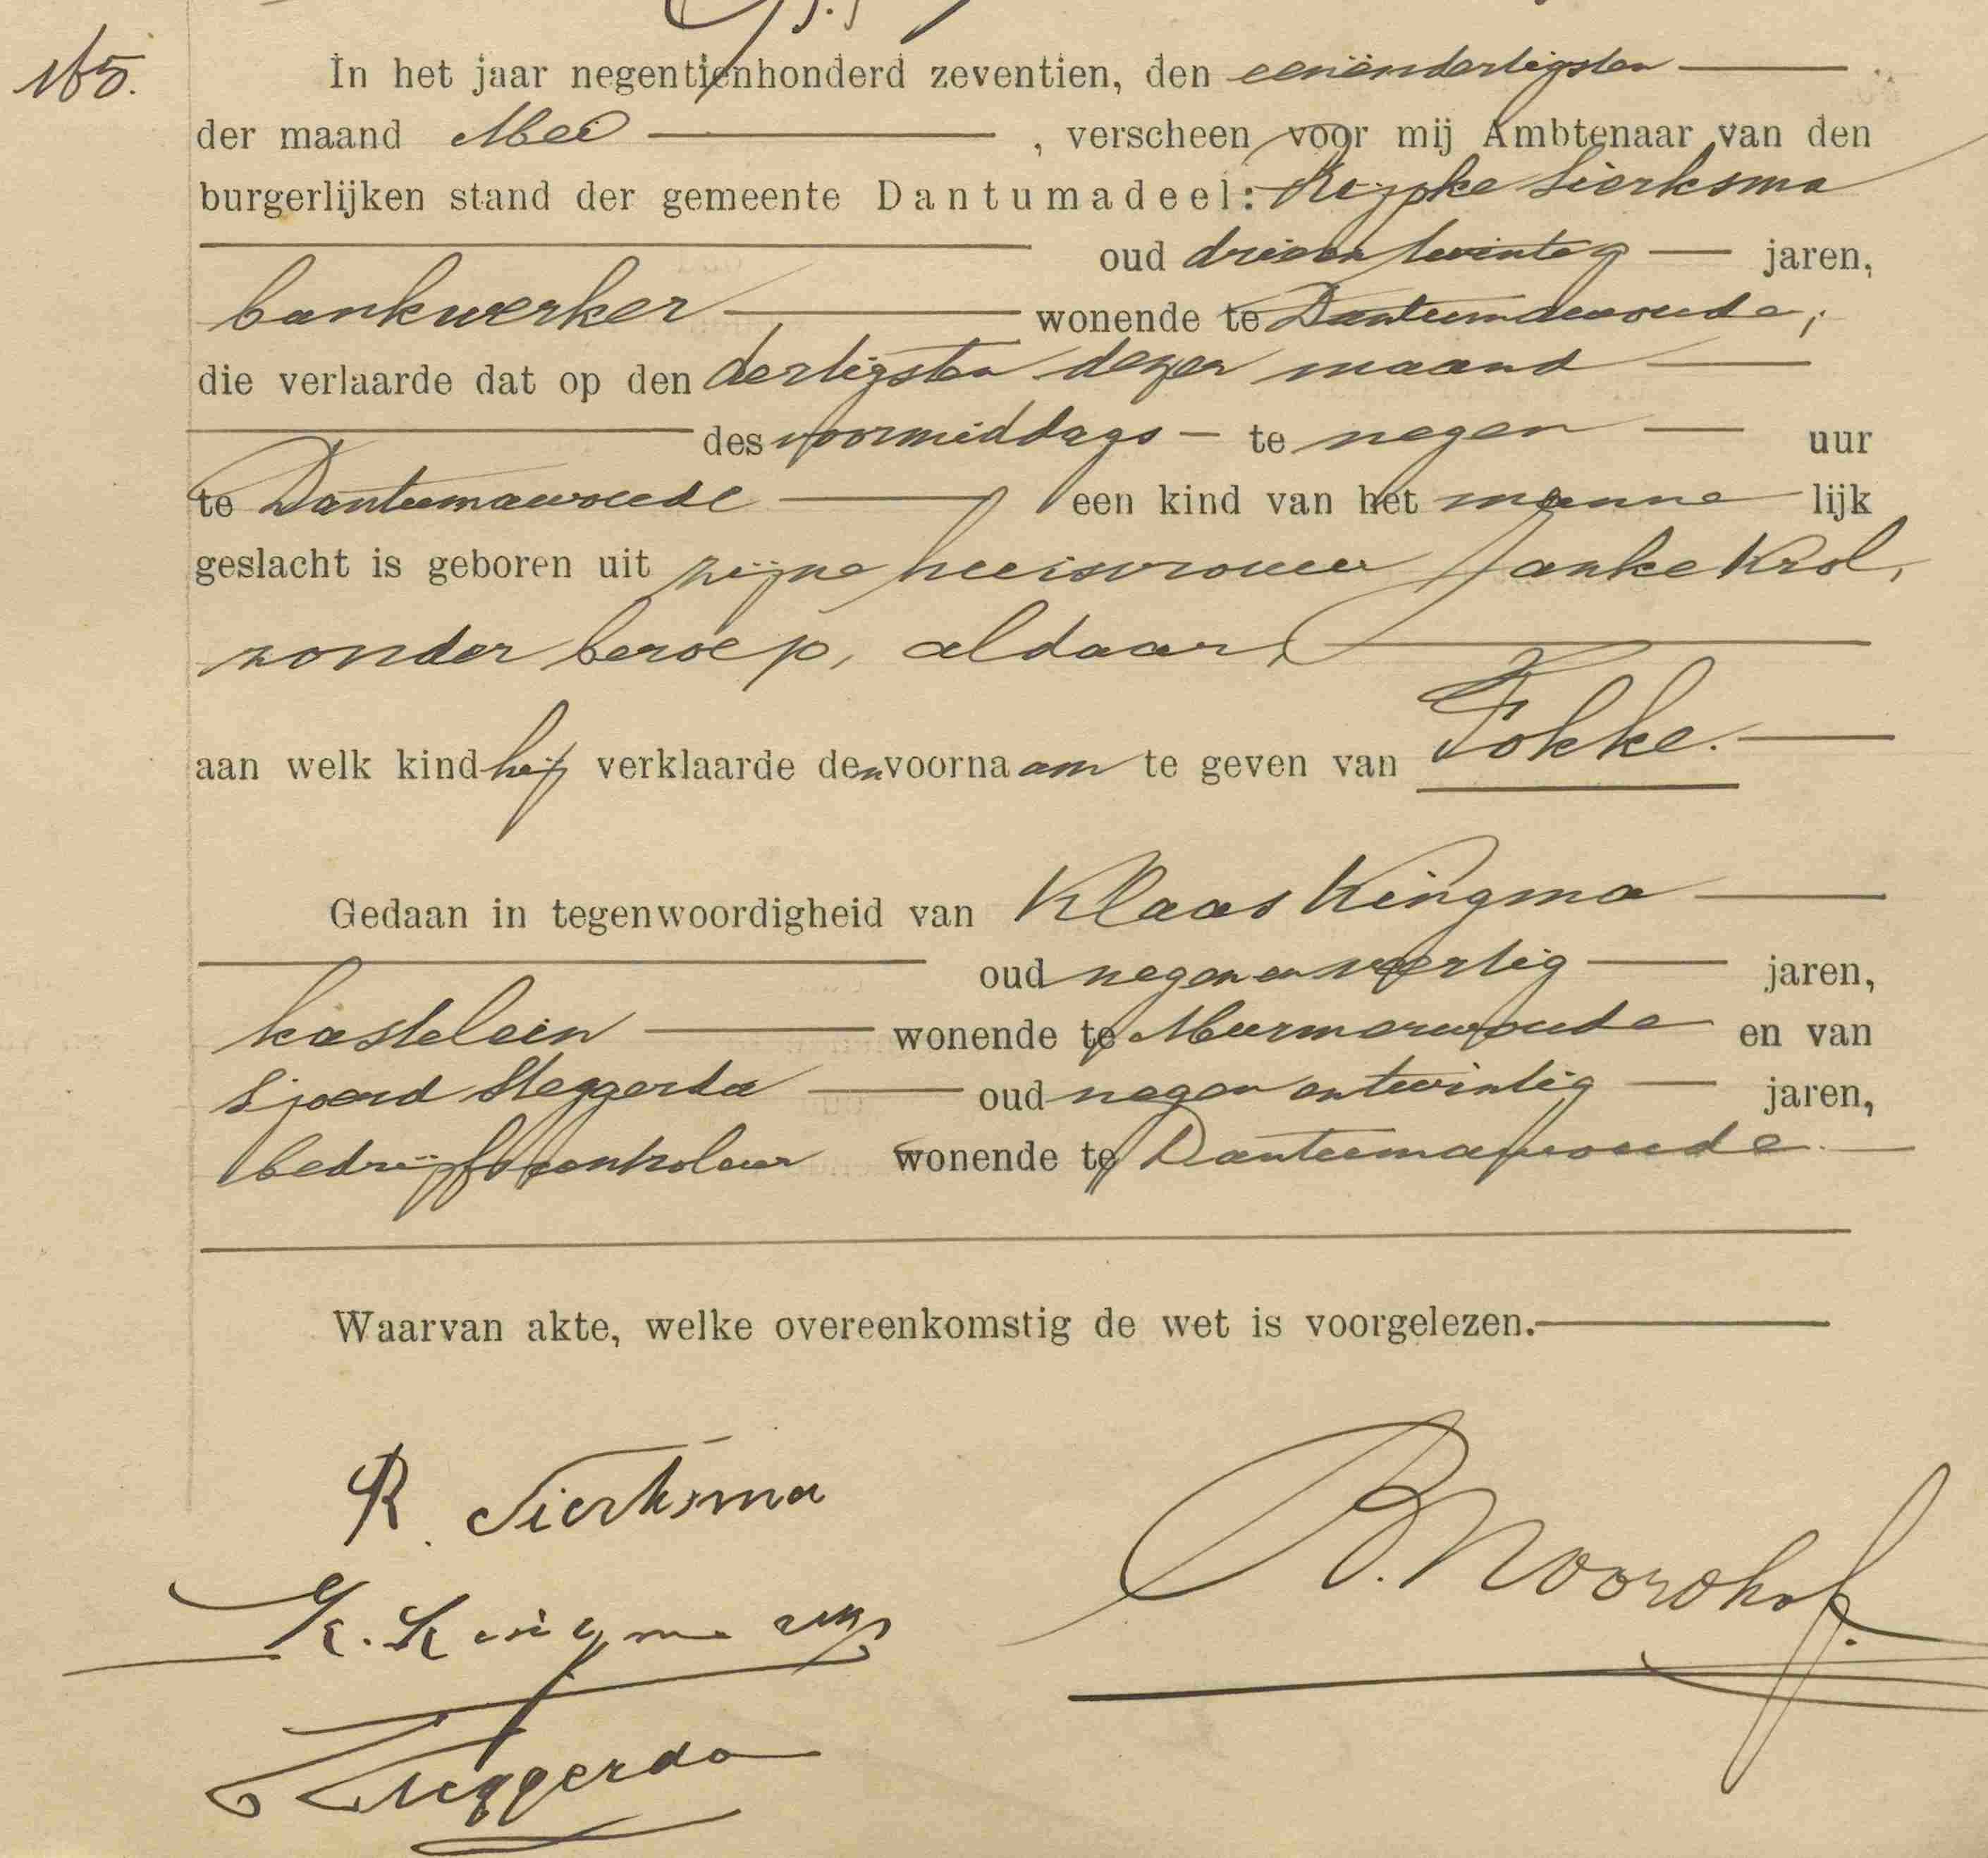 165.
In het jaar negentienhonderd zeventien, den eenendertigsten
der maand Mei, verscheen voor mij Ambtenaar van den
burgerlijken stand der gemeente Dantumadeel: Rypke Sierksma
oud drieentwintig jaren,
bankwerker wonende te Dantumawoude,
die verlaarde dat op den dertigsten dezer maand
des voormiddags te negen uur
te Dantumawoude een kind van het mannelijk
geslacht is geboren uit zijne huisvrouw Janke Krol,
zonder beroep, aldaar,
aan welk kind hij verklaarde den voornaam te geven van Fokke.
Gedaan in tegenwoordigheid van Klaas Kingma
oud negenenveertig jaren,
kastelein wonende te Murmerwoude en van
Sjoerd Steggerda oud negenentwintig jaren,
bedrijfscontroleur wonende te Dantumawoude
Waarvan akte, welke overeenkomstig de wet is voorgelezen.
R. Sierksma
K. Kingma
B. Noordhof.
Steggerda